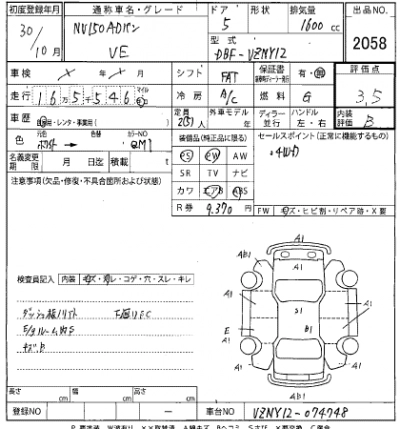 初度登録年月 通称車名・グレード ドア 形状 排気量 出品NO.
30/10月 NV150ADバン 5 1600 cc
VE 型式 DBF-VZNY12 2058
車検 × 年 × 月 シフト FAT 保証書 有・無 評価点
走行 165546 冷房 A/C 燃料 G 3.5
車歴 自家用・レンタ・事業用( ) 定員 2(5)人 外車モデル 年 ディーラー 並行 ハンドル 左・右 内装評価 B
色 元色 ホワイト → 色替 カラーNO QM1 装備品(純正品に限る) セールスポイント(正常に機能するもの)
名義変更期限 月 日迄 積載 t PS PW AW ・4WD
注意事項(欠品・修復・不具合箇所および状態) SR TV ナビ
カワ エアB ABS
R券 9,370 円 FW キズ・ヒビ割・リペア跡・X要
A1
Ab1 A1
検査員記入 内装 キズ・汚レ・コゲ・穴・スレ・キレ
A1 A1
A1 S1 A1
E B1
A1
キズ、凹
A1
Ab1
長さ cm 幅 cm 高さ cm
登録NO ー 車台NO VZNY12-074748